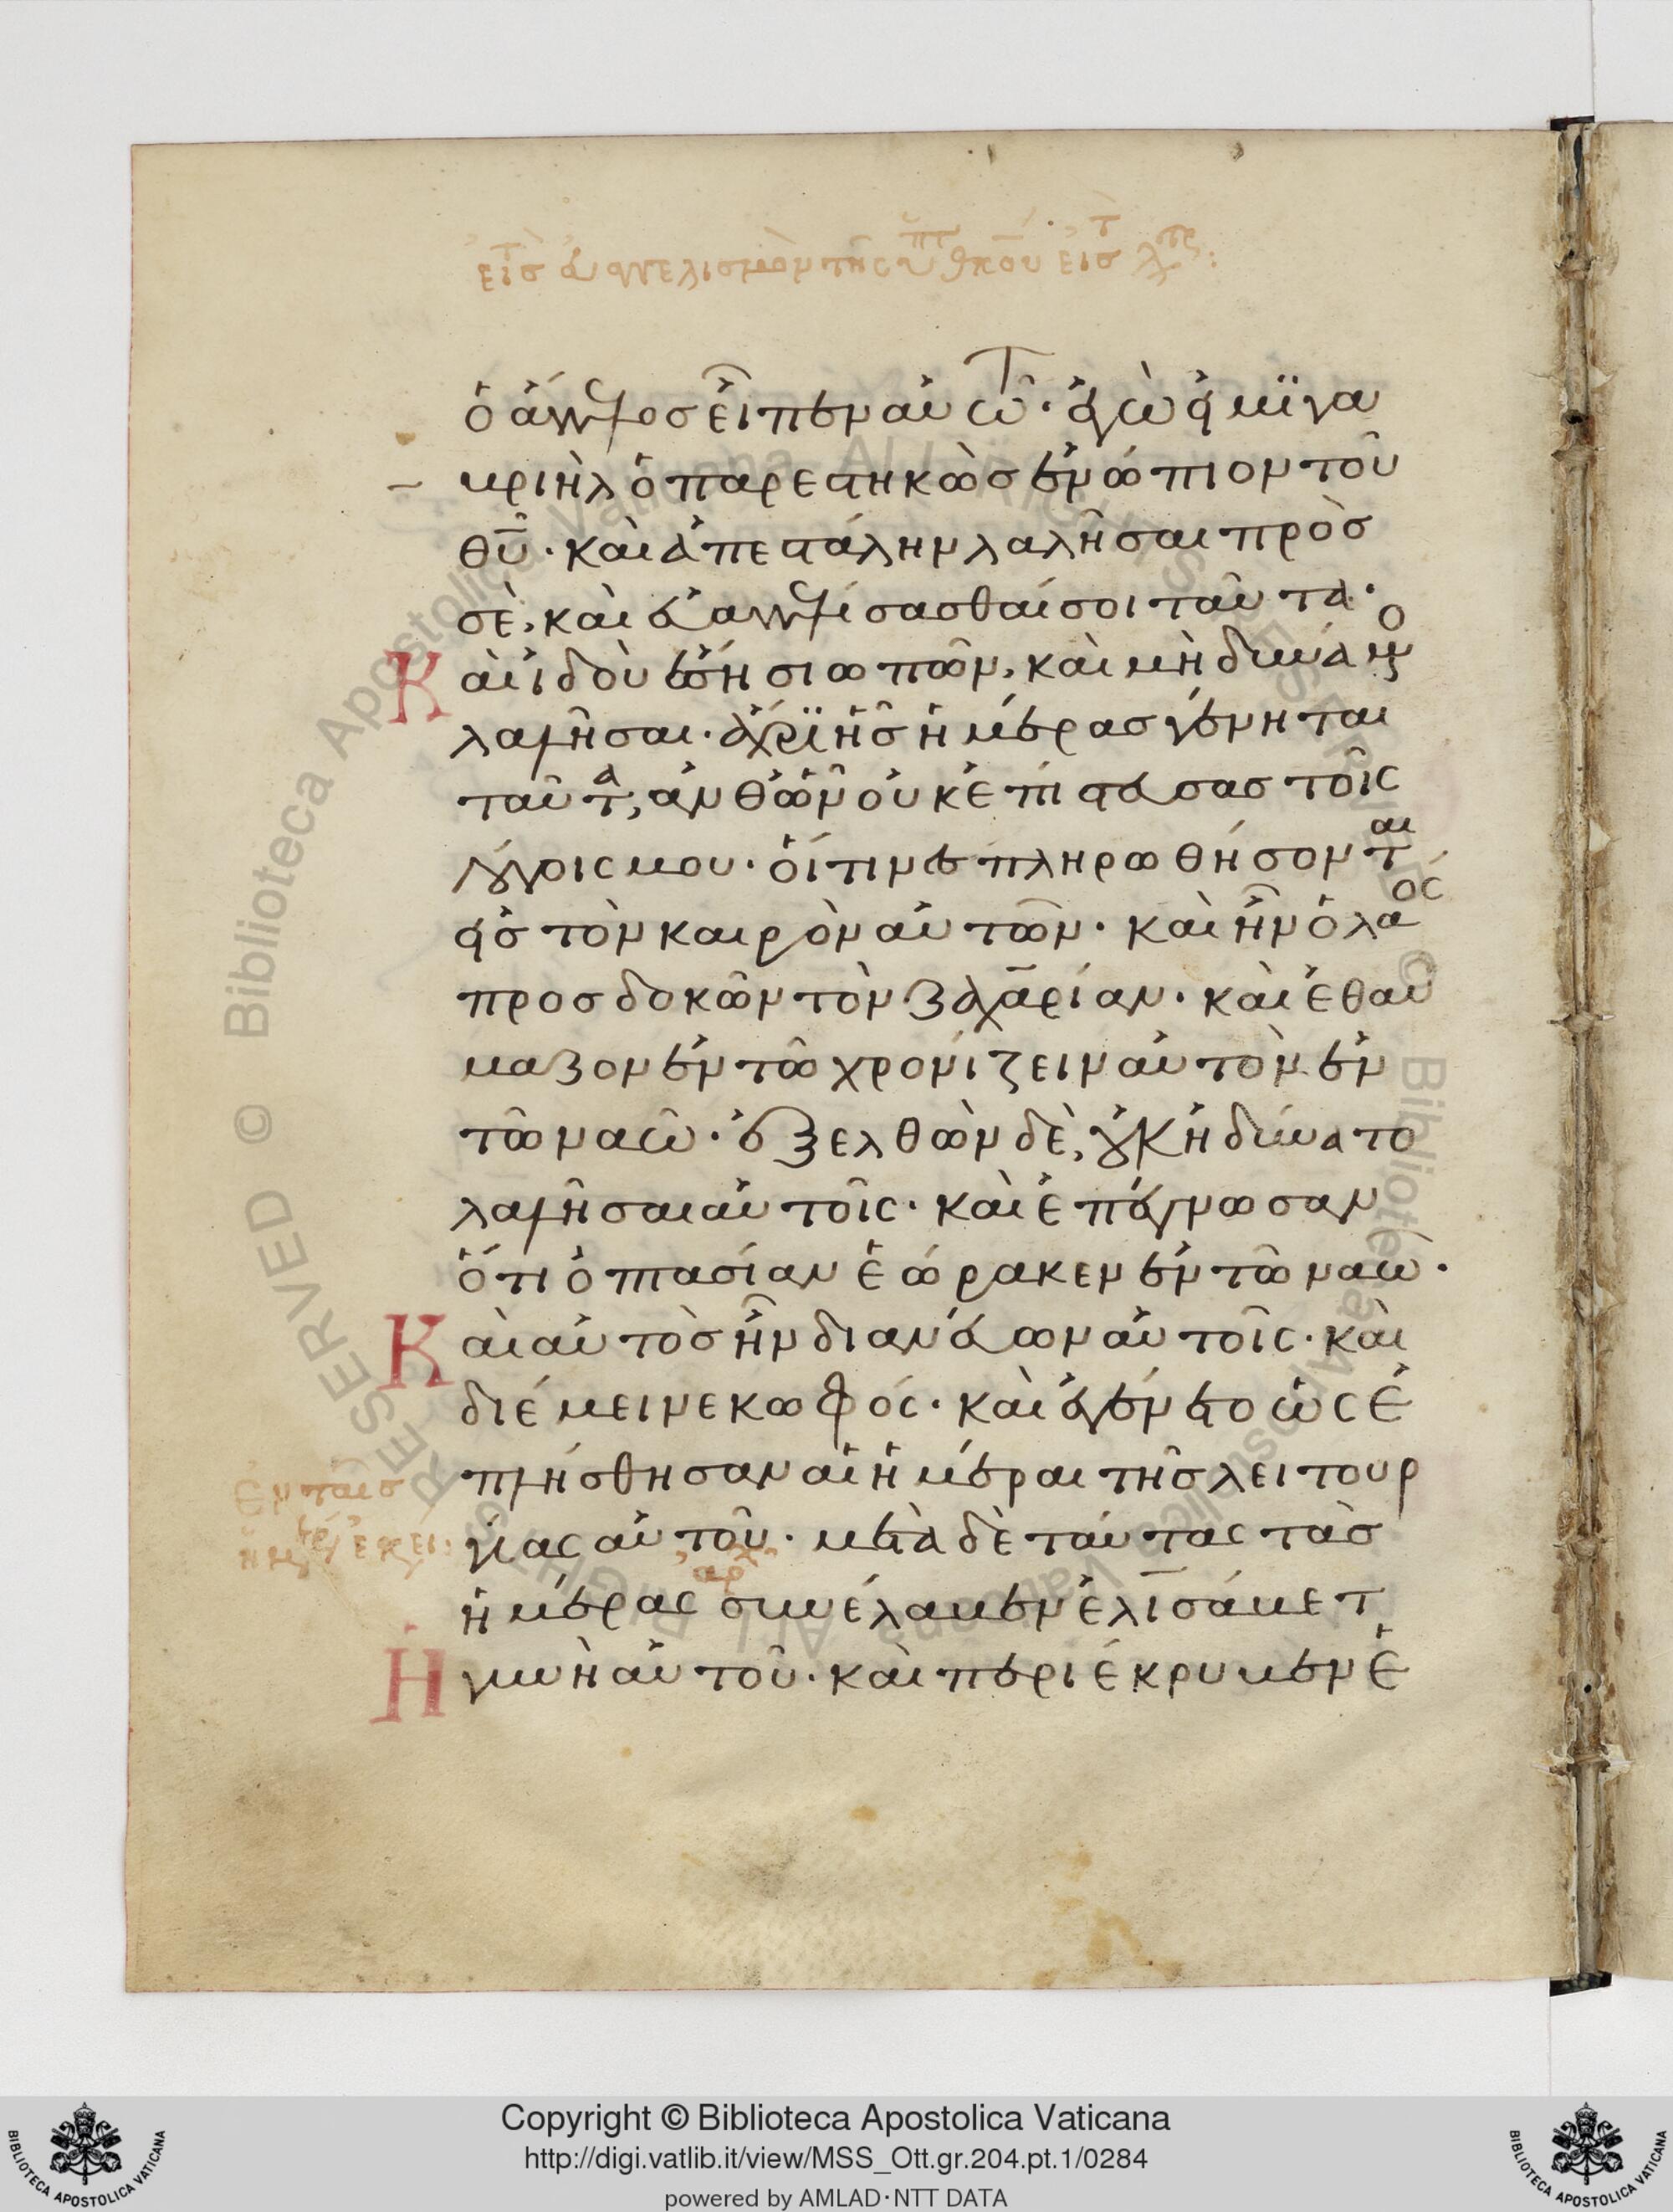 ὁ ἄγγελος εἶπεν αὐτῶ· ἐγὼ εἰμϊ γα
βριὴλ ὁ παρεστηκὼς ἐνώπιον τοῦ
θῦ· καὶ ἀπεστάλην λαλῆσαι πρὸς
σὲ, καὶ εὐαγγελίσασθαί σοι ταῦτα·
Καὶ ἰδοὺ ἔση σιωπῶν, καὶ μὴ δυνάμενος
λαλῆσαι· ἄχρϊ ἧς ἡμέρας γένηται
ταῦτα, ἀνθ ὧν οὐκ ἐπίστευσας τοῖς
λόγοις μου· οἵτινες πληρωθήσονται
εἰς τὸν καιρὸν αὐτῶν· καὶ ἦν ὁ λαός
προσδοκῶν τὸν ζαχαρίαν· καὶ ἐθαύ
μαζον ἐν τῶ χρονίζειν αὐτὸν ἐν
τῶ ναῶ· ἐξελθὼν δὲ, οὐκ ἠδύνατο
λαλῆσαι αὐτοῖς· καὶ ἐπέγνωσαν
ὅτι ὀπτασίαν ἑώρακεν ἐν τῶ ναῶ·
Καὶ αὐτὸς ἦν διανεύων αὐτοῖς· καὶ
διέμεινε κωφός· καὶ ἐγένετο ὡς ἐ
πλήσθησαν αἱ ἡμέραι τῆς λειτουρ
γίας αὐτοῦ· μετὰ δὲ ταύτας τὰς
ἡμέρας συνέλαβεν ἐλισάβετ
Ἡ γυνὴ αὐτοῦ· καὶ περιέκρυβεν ἑ
Copyright © Biblioteca Apostolica Vaticana
http://digi.vatlib.it/view/MSS_Ott.gr.204.pt.1/0284
powered by AMLAD·NTT DATA
BIBLIOTECA APOSTOLICA VATICANA
BIBLIOTECA APOSTOLICA VATICANA